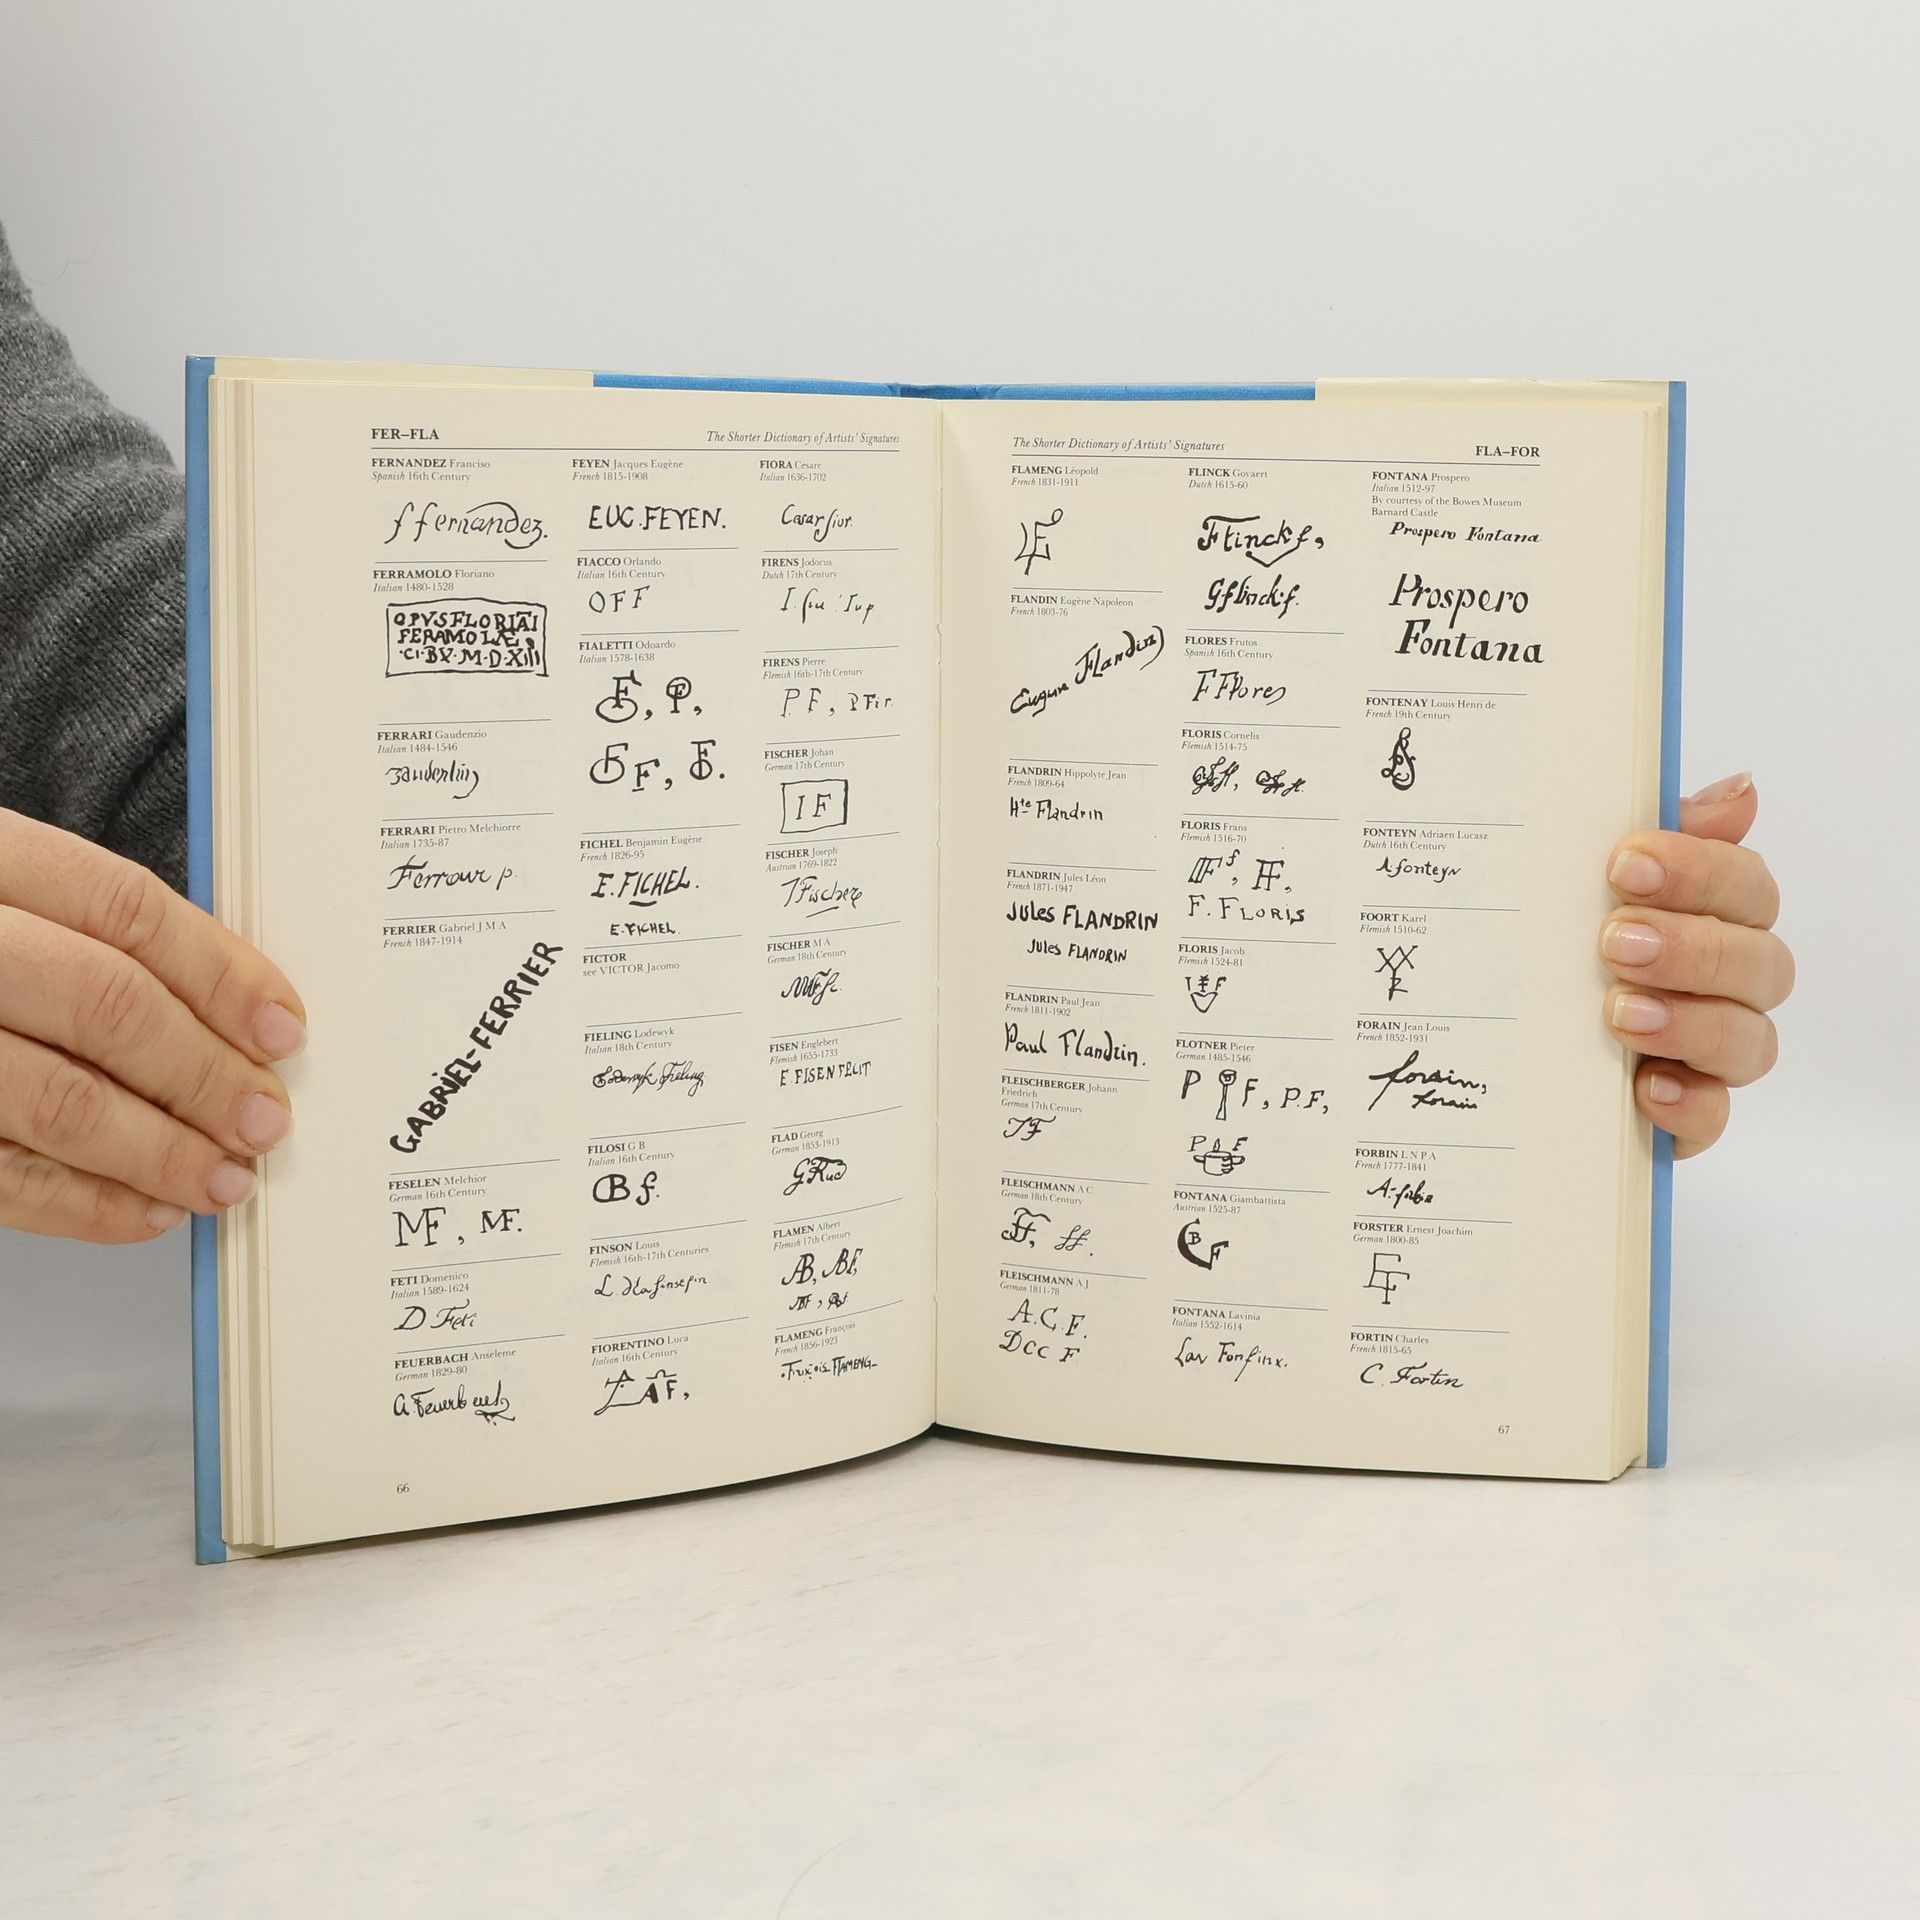 FER–FLA
The Shorter Dictionary of Artists' Signatures
FERNANDEZ Franciso
Spanish 16th Century
f fernandez.
FERRAMOLO Floriano
Italian 1480-1528
OPVS FLORIAI
FERAMOLÆ
·CI·BX·M·D·XIII
FERRARI Gaudenzio
Italian 1484-1546
FERRARI Pietro Melchiorre
Italian 1735-87
FERRIER Gabriel J M A
French 1847-1914
GABRIEL-FERRIER
FESELEN Melchior
German 16th Century
MF, MF.
FETI Domenico
Italian 1589-1624
D Feti
FEUERBACH Anseleme
German 1829-80
A. Feuerbach
FEYEN Jacques Eugène
French 1815-1908
EUG. FEYEN.
FIACCO Orlando
Italian 16th Century
OFF
FIALETTI Odoardo
Italian 1578-1638
FICHEL Benjamin Eugène
French 1826-95
E. FICHEL.
E. FICHEL.
FICTOR
see VICTOR Jacomo
FIELING Lodewyk
Italian 18th Century
Lodewyk Fieling
FILOSI G B
Italian 16th Century
B f.
FINSON Louis
Flemish 16th-17th Centuries
FIORENTINO Luca
Italian 16th Century
FIORA Cesare
Italian 1636-1702
FIRENS Jodocus
Dutch 17th Century
FIRENS Pierre
Flemish 16th-17th Century
P. F, P Fir.
FISCHER Johan
German 17th Century
I F
FISCHER Joseph
Austrian 1769-1822
J Fischer
FISCHER M A
German 18th Century
FISEN Englebert
Flemish 1655-1733
E. FISEN FECIT
FLAD Georg
German 1853-1913
FLAMEN Albert
Flemish 17th Century
AB, AB f,
FLAMENG François
French 1856-1923
François FLAMENG
66
The Shorter Dictionary of Artists' Signatures
FLA–FOR
FLAMENG Léopold
French 1831-1911
FLANDIN Eugène Napoleon
French 1803-76
Eugene Flandin
FLANDRIN Hippolyte Jean
French 1809-64
Hte Flandrin
FLANDRIN Jules Léon
French 1871-1947
JULES FLANDRIN
JULES FLANDRIN
FLANDRIN Paul Jean
French 1811-1902
Paul Flandrin.
FLEISCHBERGER Johann
Friedrich
German 17th Century
FLEISCHMANN A C
German 18th Century
FLEISCHMANN A J
German 1811-78
A. C. F.
DCC F
FLINCK Govaert
Dutch 1615-60
Flinck f,
G flinck. f.
FLORES Frutos
Spanish 16th Century
F Flores
FLORIS Cornelis
Flemish 1514-75
FLORIS Frans
Flemish 1516-70
FF f, FF,
F. FLORIS
FLORIS Jacob
Flemish 1524-81
FLOTNER Pieter
German 1485-1546
P F, P.F,
FONTANA Giambattista
Austrian 1525-87
FONTANA Lavinia
Italian 1552-1614
FONTANA Prospero
Italian 1512-97
By courtesy of the Bowes Museum
Barnard Castle
Prospero Fontana
Prospero
Fontana
FONTENAY Louis Henri de
French 19th Century
FONTEYN Adriaen Lucasz
Dutch 16th Century
A. fonteyn
FOORT Karel
Flemish 1510-62
FORAIN Jean Louis
French 1852-1931
forain,
forain
FORBIN L N P A
French 1777-1841
FORSTER Ernest Joachim
German 1800-85
FORTIN Charles
French 1815-65
C. Fortin
67